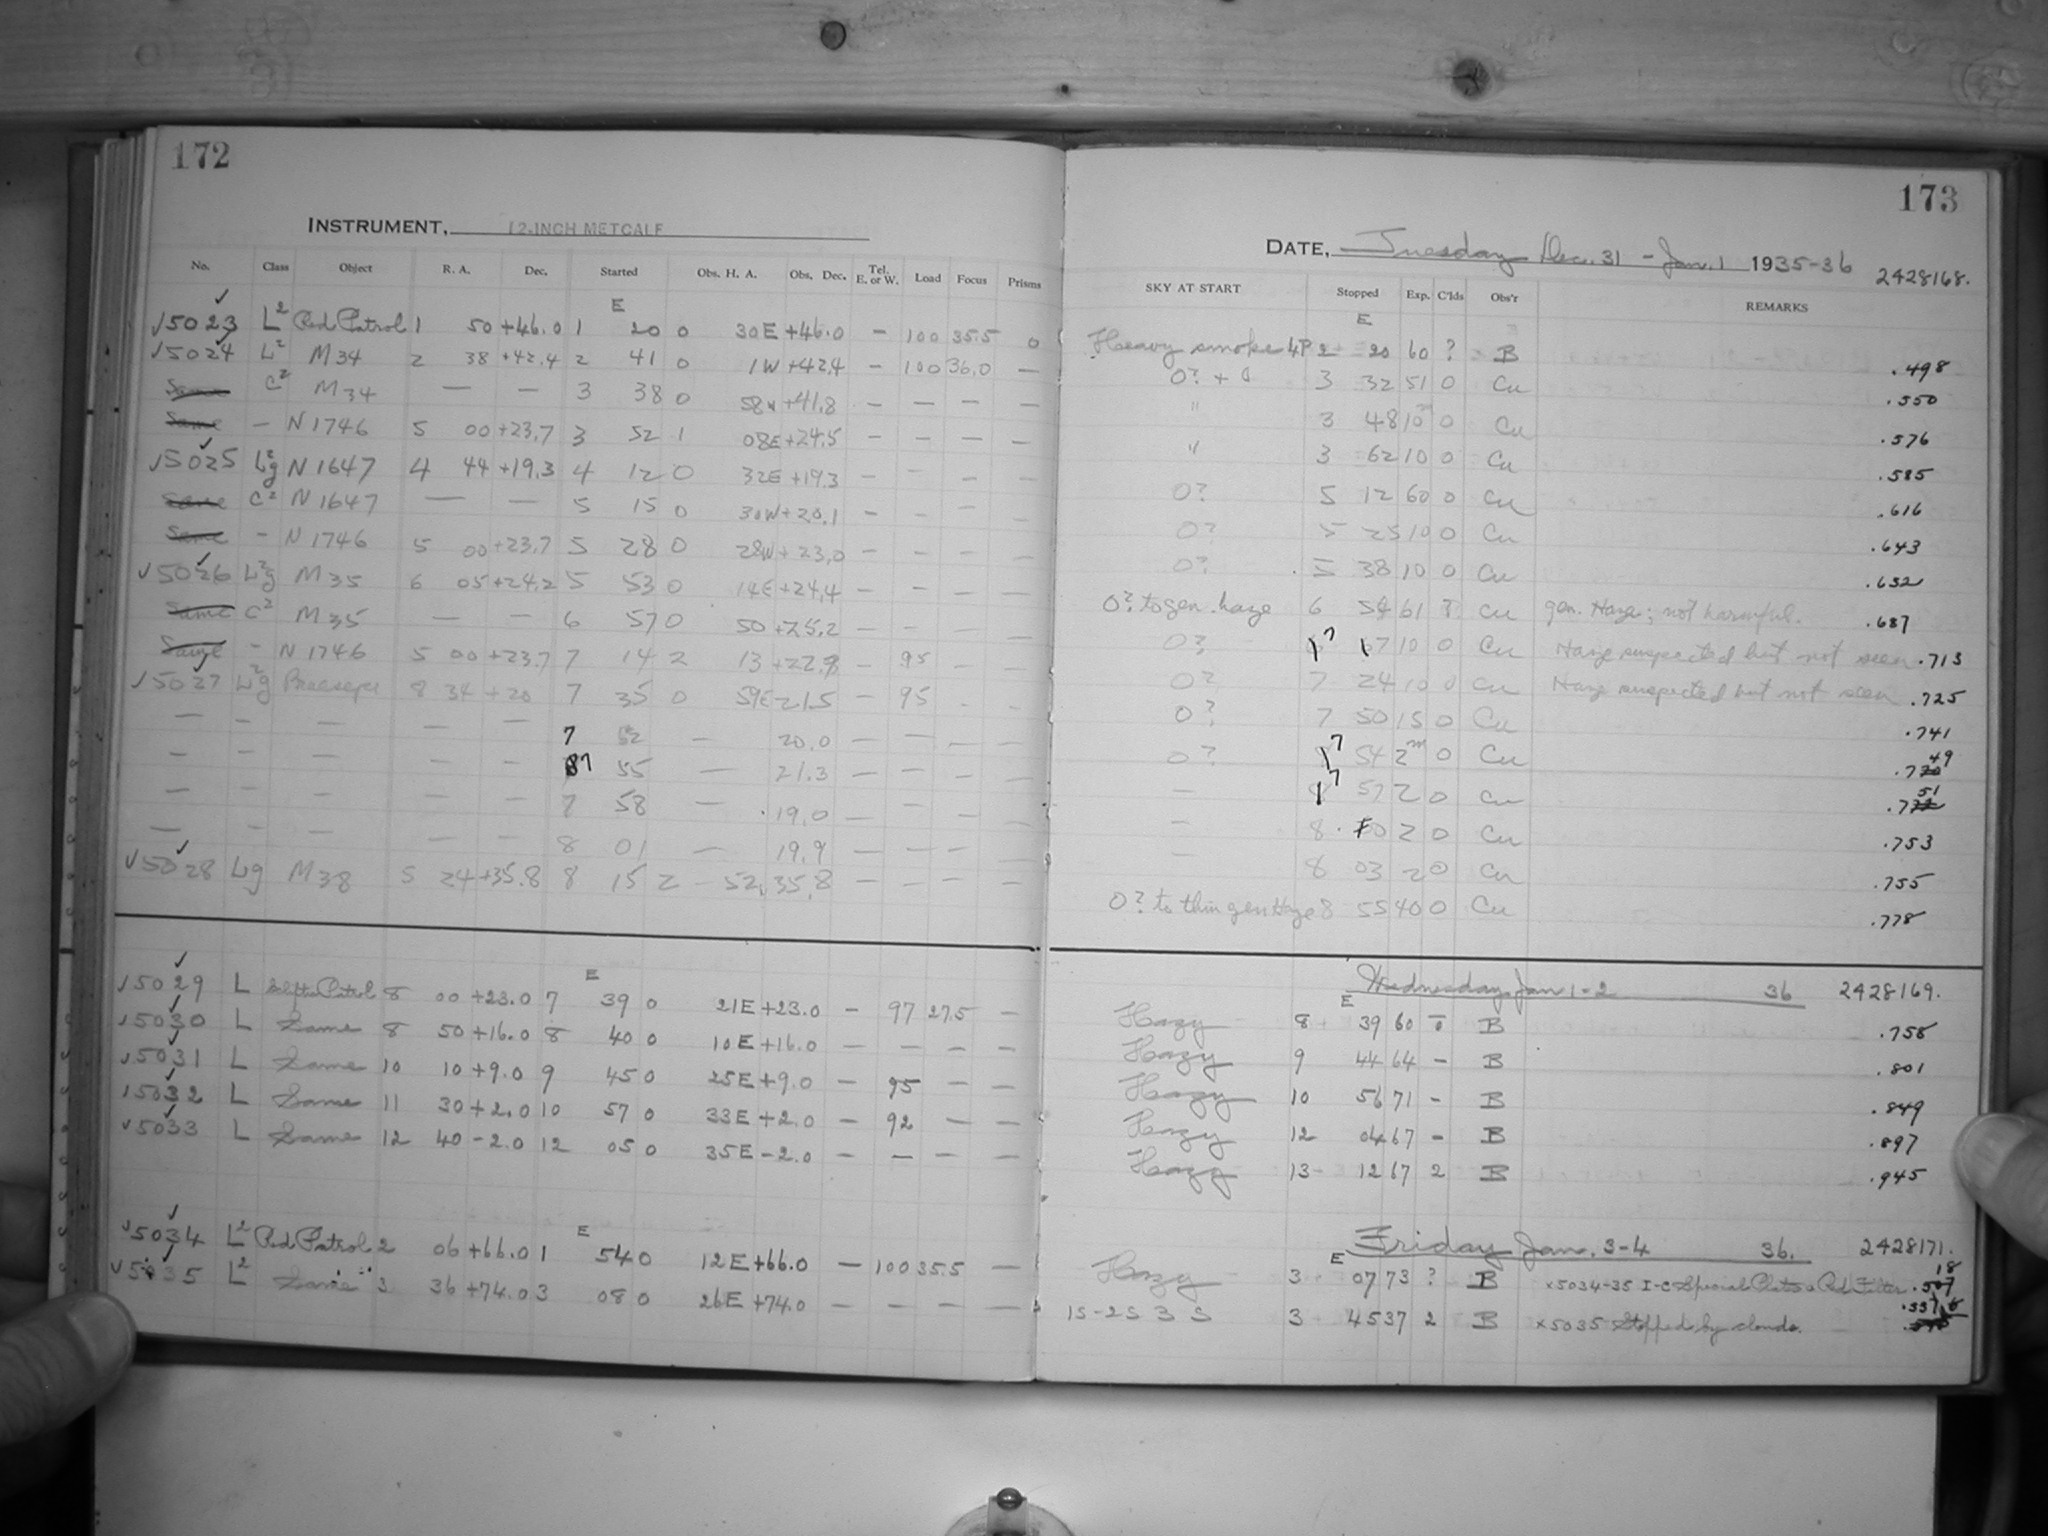 172
INSTRUMENT, 12-INCH METCALF
No. Class Object R. A. Dec. Started Obs. H. A. Obs. Dec. Tel. E. or W. Load Focus Prisms
E
15023 L2 Red Patrol 1 50 +46.0 1 20 0 30E +46.0 - 100 35.5 0
15024 L2 M34 2 38 +42.4 2 41 0 1W +42.4 - 100 36.0 -
Same C2 M34 - - 3 38 0 58W +41.8 - - - -
Same - N1746 5 00 +23.7 3 52 1 08E +24.5 - - - -
15025 L2g N1647 4 44 +19.3 4 12 0 32E +19.3 - - - -
Same C2 N1647 - - 5 15 0 30W +20.1 - - - -
Same - N1746 5 00 +23.7 5 28 0 28W +23.0 - - - -
15026 L2g M35 6 05 +24.2 5 53 0 14E +24.4 - - - -
Same C2 M35 - - 6 57 0 50 +25.2 - - - -
Same - N1746 5 00 +23.7 7 14 2 13 +22.8 - 95 - -
15027 L2g Praesepe 8 34 +20 7 35 0 59E 21.5 - 95 - -
- - - - - 7 52 - 20.0 - - - -
- - - - - 7 55 - 21.3 - - - -
- - - - - 7 58 - 19.0 - - -
- - - - - 8 01 - 19.9 - - - -
15028 Lg M38 5 24 +35.8 8 15 2 52 35.8 - - - -
E
15029 L Patrol 8 00 +23.0 7 39 0 21E +23.0 - 97 27.5 -
15030 L Same 8 50 +16.0 8 40 0 10E +16.0 - - - -
15031 L Same 10 10 +9.0 9 45 0 25E +9.0 - 95 - -
15032 L Same 11 30 +2.0 10 57 0 33E +2.0 - 92 - -
15033 L Same 12 40 -2.0 12 05 0 35E -2.0 - - - -
E
15034 L2 Red Patrol 2 06 +66.0 1 54 0 12E +66.0 - 100 35.5 -
15035 L2 Same 3 36 +74.0 3 08 0 26E +74.0 - - - -
173
DATE, Tuesday Dec. 31 - Jan. 1 1935-36 2428168.
SKY AT START Stopped Exp. C'lds Obs'r REMARKS
E
Heavy smoke 4P 2 20 60 ? B .498
0? + 0 3 32 51 0 Cu .550
" 3 48 10m 0 Cu .576
" 3 62 10 0 Cu .585
0? 5 12 60 0 Cu .616
0? 5 25 10 0 Cu .643
0? 5 38 10 0 Cu .652
0? to gen. haze 6 54 61 ? Cu gen. Haze; not harmful. .687
0? 7 10 0 Cu Haze suspected but not seen .713
0? 7 24 10 0 Cu Haze suspected but not seen .725
0? 7 50 15 0 Cu .741
0? 7 54 2m 0 Cu .749
- 7 57 2 0 Cu .751
- 8 2 0 Cu .753
- 8 03 2 0 Cu .755
0? to thin gen Haze 8 55 40 0 Cu .778
Wednesday Jan 1-2 36 2428169.
E
Hazy 8 39 60 0 B .758
Hazy 9 44 64 - B .801
Hazy 10 56 71 - B .849
Hazy 12 04 67 - B .897
Hazy 13 12 67 2 B .945
Friday Jan. 3-4 36. 2428171.
E
Hazy 3 07 73 ? B x5034-35 I-C Special Plates & Red Filter .518
1S-2S 3 S 3 45 37 2 B x5035 Stopped by clouds.